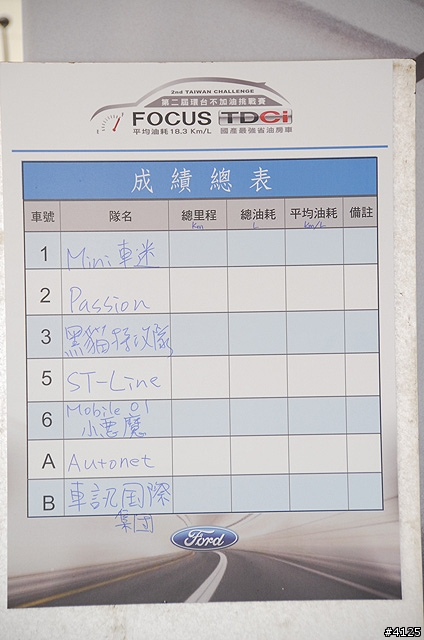 2nd TAIWAN CHALLENGE
第二屆環台不加油挑戰賽
FOCUS TDCi
平均油耗18.3 Km/L 國產最強省油房車
成績總表
車號 隊名 總里程 Km 總油耗 L 平均油耗 Km/L 備註
1 Mini車迷
2 Passion
3 黑貓特攻隊
5 ST-Line
6 Mobile 01
小惡魔
A Autonet
B 車訊国際
集团
Ford
#4125